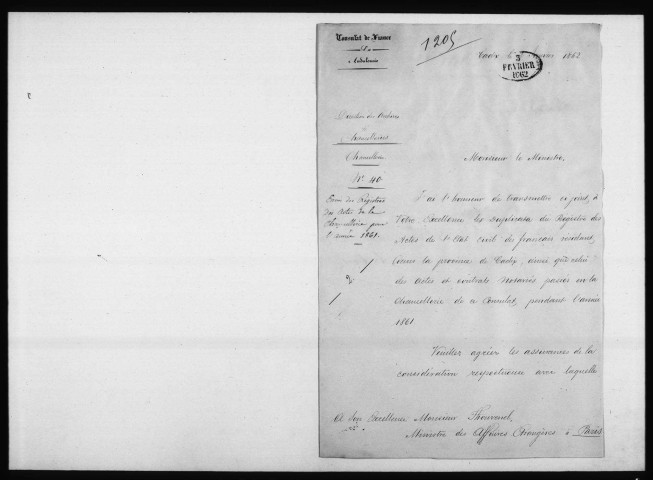 Consulat de France
en
Andalousie
1205
Cadix le 1862
3
FEVRIER
1862
Direction des Archives
et
Chancelleries
Chancellerie
N° 40
Envoi des Registres
des Actes de la
Chancellerie pour
l'année 1861.
Monsieur le Ministre,
J'ai l'honneur de transmettre ci-joint, à
Votre Excellence les duplicata du Registre des
Actes de l'Etat civil des français résidant,
dans la province de Cadix, ainsi que celui
des actes et contrats notariés passés en la
Chancellerie de ce Consulat, pendant l'année
1861
Veuillez agréer les assurances de la
considération respectueuse avec laquelle
A Son Excellence Monsieur Thouvenel,
Ministre des Affaires Etrangères à Paris